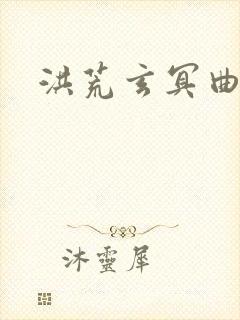 洪荒玄冥曲
沐靈犀